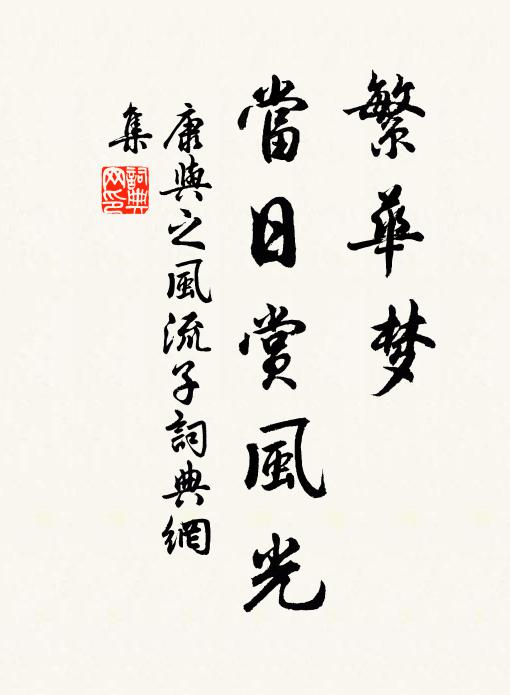 繁華梦
當日賞風光
康與之風流子詞典網
集
詞典网印